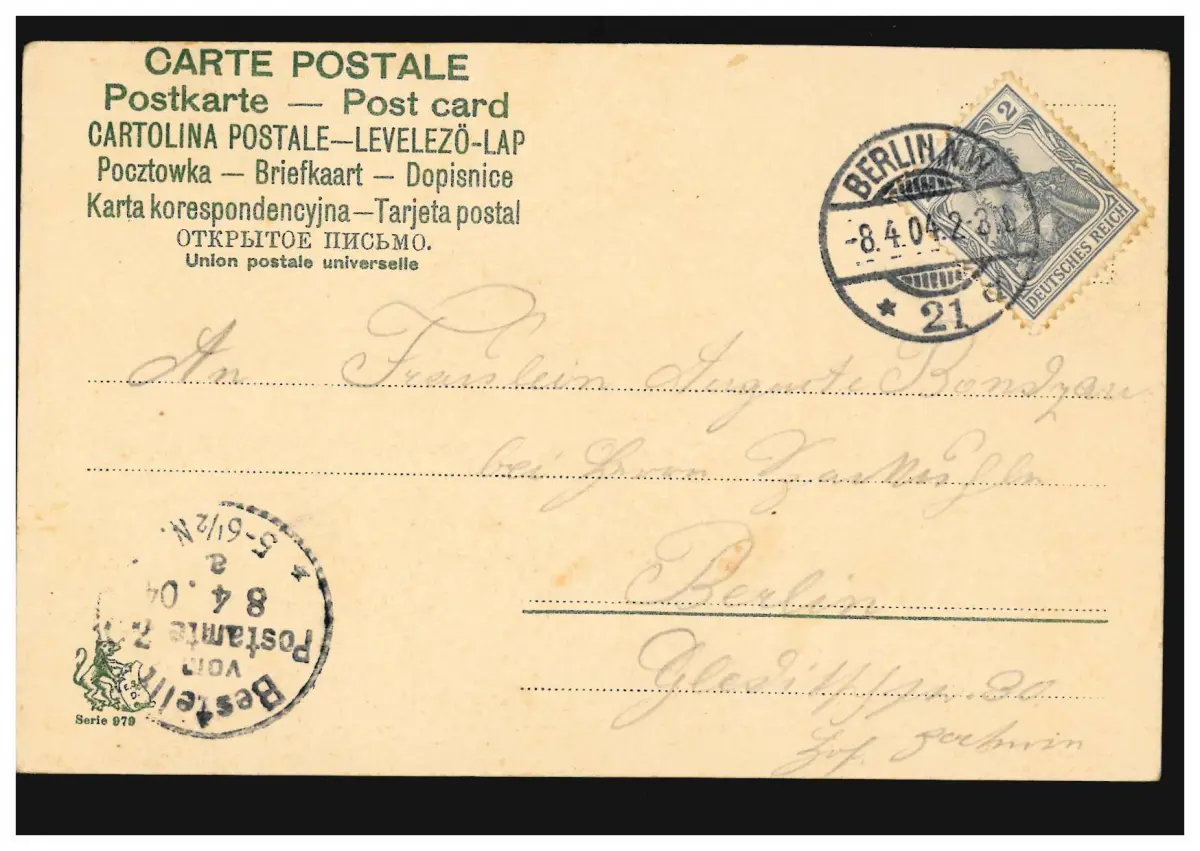 CARTE POSTALE
Postkarte — Post card
CARTOLINA POSTALE—LEVELEZÖ-LAP
Pocztowka — Briefkaart — Dopisnice
Karta korespondencyjna—Tarjeta postal
ОТКРЫТОЕ ПИСЬМО.
Union postale universelle
2
DEUTSCHES REICH
BERLIN, N.W.
-8.4.04.2-3 N
* 21 d
An Fräulein Auguste
bei Herrn
Berlin
30
Hof
Bestellt
vom
Postamte
8 4. 04
a
5-6 1/2 N.
Serie 979